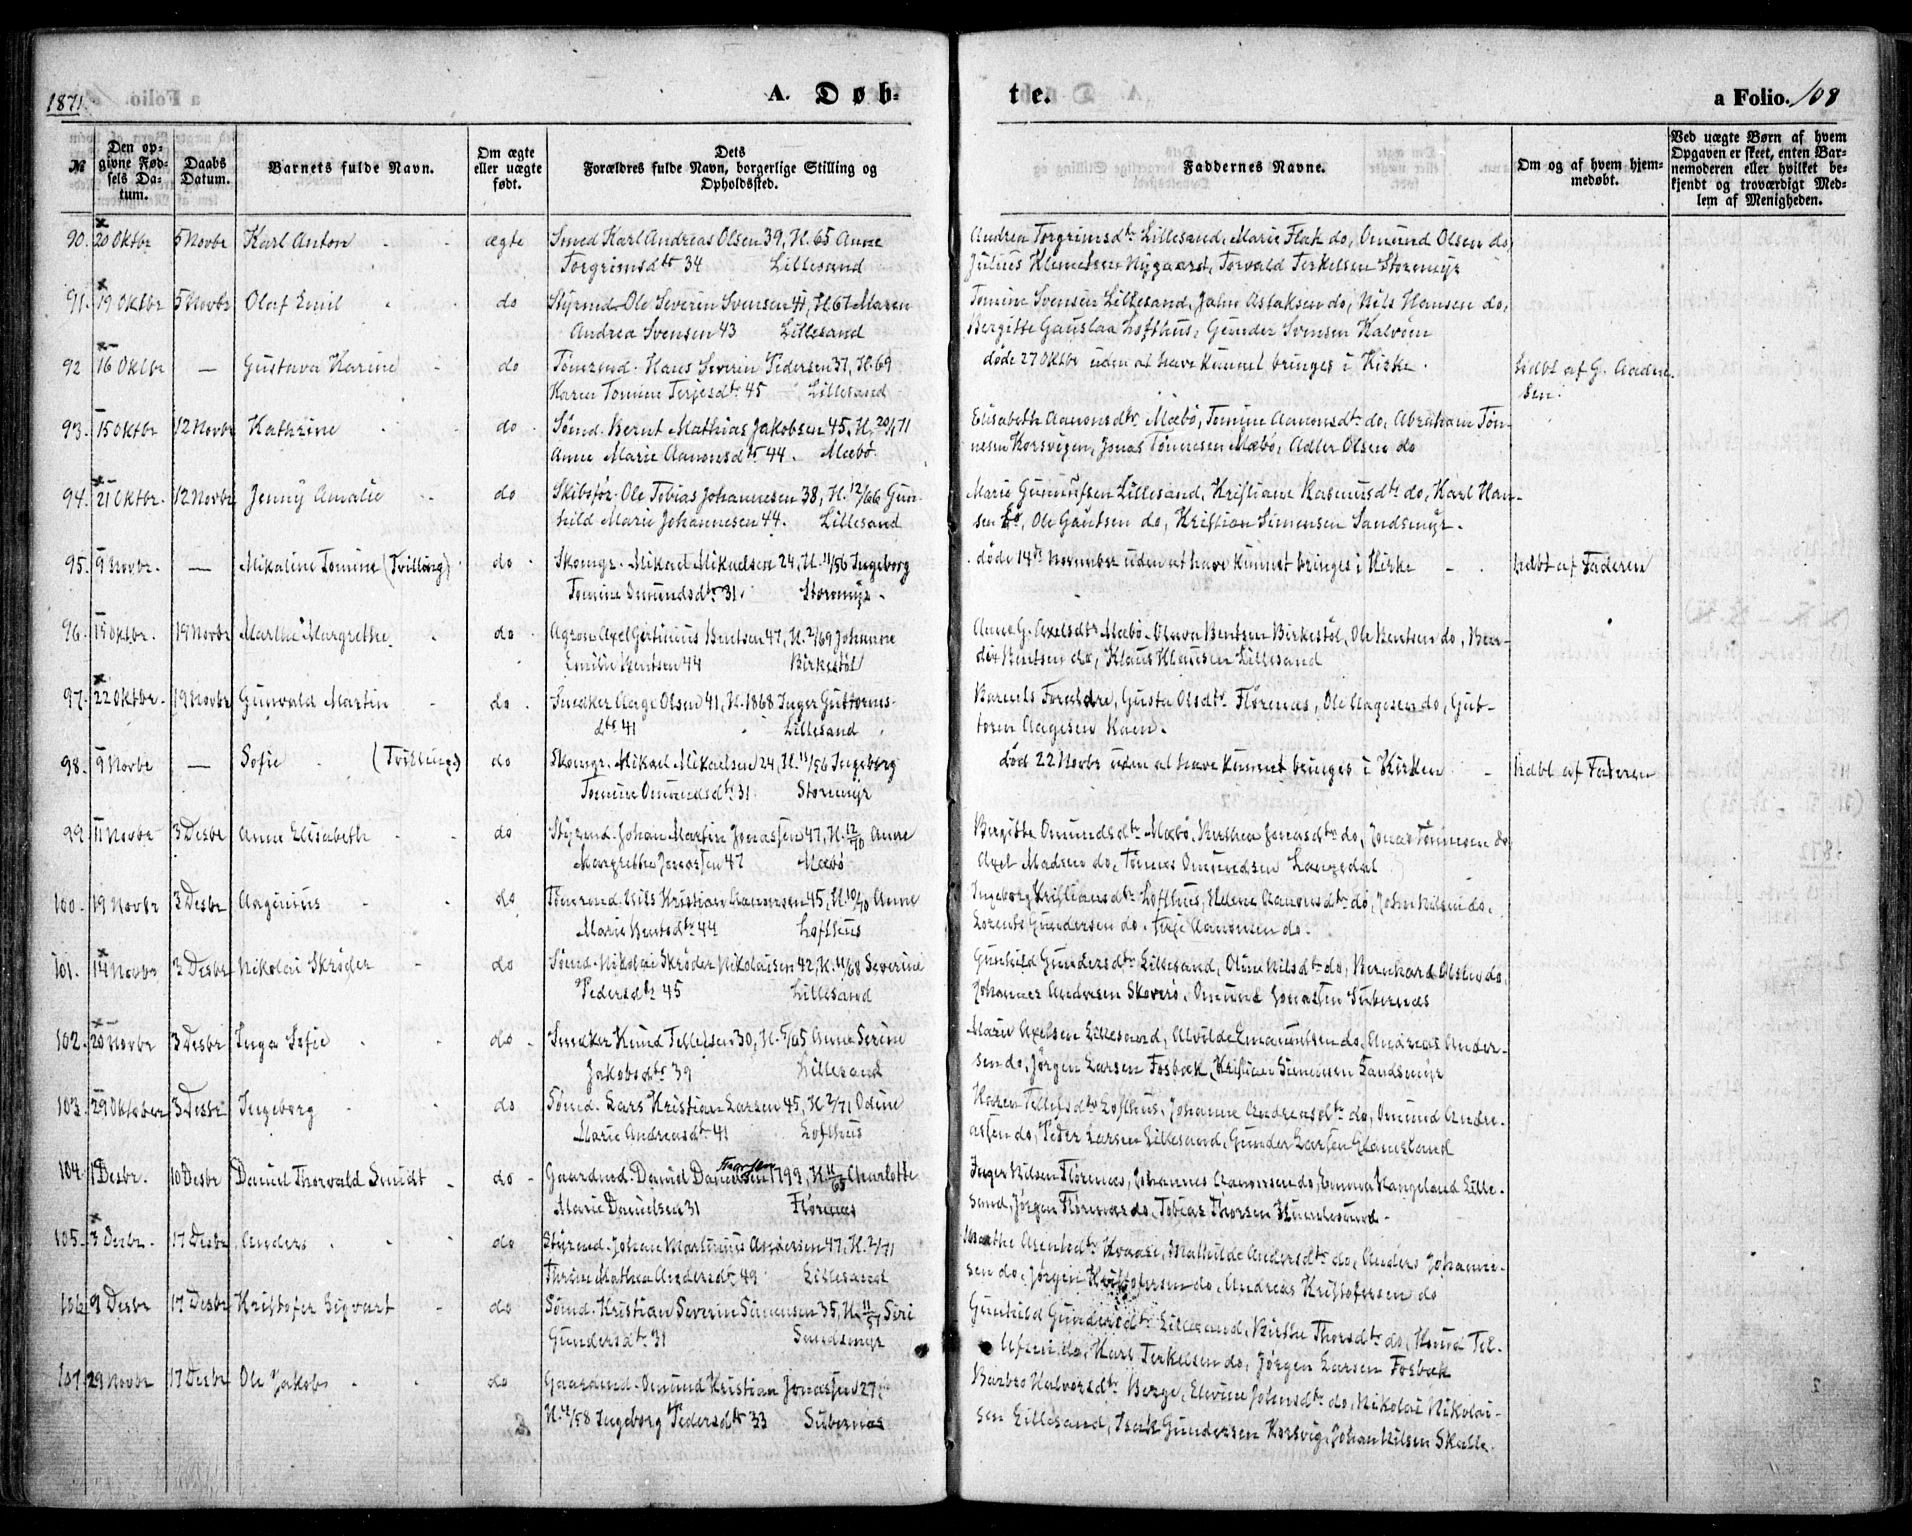 1871.
A. Døb-
te.
a Folio. 108
№
Den op-
givne Fød-
sels Da-
tum.
Daabs
Datum.
Barnets fulde Navn.
Om ægte
eller uægte
født.
Dets
Forældres fulde Navn, borgerlige Stilling og
Opholdssted.
Faddernes Navne.
Om og af hvem hjem-
medøbt.
Ved uægte Børn af hvem
Opgaven er skeet, enten Bar-
nemoderen eller hvilket be-
kjendt og troværdigt Med-
lem af Menigheden.
90. 20 Oktbr 5 Novbr Karl Anton ægte Smed Karl Andreas Olsen 39, H. 65 Anne
Torgrimsdtr 34 Lillesand
Andrea Torgrimsdtr Lillesand, Marie Flak do, Omund Olsen do,
Julius Klemetsen Nygaard, Torvald Terkelsen Storemyr
91. 19 Oktbr 5 Novbr Olaf Emil do Styrmd. Ole Severin Svensen 41, H. 67 Maren
Andrea Svensen 43 Lillesand
Tomine Svensen Lillesand, John Aslaksen do, Nils Hansen do,
Bergitte Gauslaa Lofthus, Gunder Svensen Kalveen
92 16 Oktbr — Gustava Karine do Tømrmd. Hans Severin Pedersen 37, H. 69
Karen Tomine Terjesdtr 45 Lillesand
døde 27 Oktbr uden at have kunnet bringes i Kirke.
hdbt af G. Aadne-
sen.
93. 15 Oktbr 12 Novbr Kathrine do. Sømd. Bernt Mathias Jakobsen 45, H. 20/1 71
Anne Marie Aanonsdtr 44. Mæbø.
Elisabeth Aanonsdtr Mæbø, Tomine Aanonsdtr do, Abraham Tøn-
nesen Korsvigen, Jonas Tønnesen Mæbø, Adler Olsen do
94. 21 Oktbr. 12 Novbr Jenny Amalie do Skibsfør. Ole Tobias Johannesen 38, H. 12/66 Gun-
hild Marie Johannesen 44. Lillesand
Marie Gunnufsen Lillesand, Kristiane Rasmusdtr do, Karl Han-
sen do, Ole Gautsen do, Kristian Simensen Sandsmyr.
95. 9 Novbr. — Mikaline Tomine (Tvilling) do. Skomgr. Mikael Mikaelsen 24, H. 11/56 Ingeborg
Tomine Omundsdtr 31. Storemyr.
døde 14de November uden at have kunnet bringes i Kirke
hdbt af Faderen
96. 15 Oktbr. 19 Novbr Marthe Margrethe do. Agron Axel Gertinius Bentsen 47, H. 2/69 Johanne
Emilie Bentsen 44 Birkestøl
Anne G. Axelsdtr Mæbø, Oluva Bentsen Birkestøl, Ole Bentsen do, Ben-
dix Bentsen do, Klaus Klausen Lillesand
97. 22 Oktbr. 19 Novbr Gunvald Martin do. Snedker Aage Olsen 41, H. 1868 Inger Guttorms-
dtr 41 Lillesand
Barnets Forældre, Gusta Olsdtr Florenæs, Ole Aagesen do, Gut-
torm Aagesen Kaen.
98. 9 Novbr — Sofie (Tvilling) do Skomgr. Mikael Mikaelsen 24, H. 11/56 Ingeborg
Tomine Omundsdtr 31 Storemyr
død 22 Novbr uden at have kunnet bringes i Kirken
hdbt af Faderen
99. 11 Novbr 3 Desbr Anne Elisabeth do Styrmd. Johan Martin Jonassen 47, H. 12/70 Anne
Margrethe Jonassen 47 Mæbø
Bergitte Omundsdtr Mæbø, Berthea Jonasdtr do, Jonas Tønnesen do
Axel Madsen do, Tønnes Omundsen Langedal
100. 19 Novbr 3 Desbr Aaginius do Tømrmd Nils Kristian Aanonsen 45, H. 10/70 Anne
Marie Bentsdtr 44 Lofthus
Ingeborg Kristiansdtr Lofthus, Helene Aanonsdtr do, John Nilsen do,
Lorents Gundersen do, Terje Aanonsen do.
101. 14 Novbr 3 Desbr Nikolai Skrøder do Sømd. Nikolai Skrøder Nikolaisen 42, H. 11/68 Severine
Pedersdtr 45 Lillesand
Gunhild Gundersdtr Lillesand, Oline Nilsdtr do, Bernhard Olsen do,
Johannes Andersen Skoverø, Omund Jonassen Subernæs
102. 20 Novbr 3 Desbr Inga Sofie do. Snedker Knud Tellefsen 30, H. 5/65 Anne Serine
Jakobsdtr 39 Lillesand
Marie Axelsen Lillesand, Alvilde Emanuelsen do, Andreas Ander-
sen do, Jørgen Larsen Fosbæk, Kristian Simensen Sandsmyr
103. 29 Oktober 3 Desbr Ingeborg do Sømd. Lars Kristian Larsen 45, H. 2/71 Odine
Marie Andreasdtr 41 Lofthus
Karen Tellefsdtr Lofthus, Johanne Andreasdtr do, Omund Andre-
assen do, Peder Larsen Lillesand, Gunder Larsen Glamsland
104. 1 Desbr. 10 Desbr Daniel Thorvald Smidt do. Gaardmd. Daniel Danielsen 1799, H. 11/65 Charlotte
Marie Danielsen 31 Florenæs
Inger Nilsen Florenæs, Johannes Aanonsen do, Emma Hangeland Lille-
sand, Jørgen Florenæs do, Tobias Thorsen Humlesund.
105. 3 Desbr. 17 Desbr Anders do Styrmd. Johan Martinius Andersen 47, H. 2/71
Thrine Mathea Andersdtr 49 Lillesand
Marthe Asenbodtr Kvaase, Mathilde Andersdtr do, Anders Johanne-
sen do, Jørgen Kristofersen do, Andreas Kristofersen do
106 9 Desbr 17 Desbr Kristofer Sigvart do. Sømd. Kristian Severin Simensen 35, H. 11/57 Siri
Gundersdtr 31 Sandsmyr
Gunhild Gundersdtr Lillesand, Birthe Thorsdtr do, Knud Tel-
lefsen do, Karl Terkelsen do, Jørgen Larsen Fosbæk
107 29 Novbr 17 Desbr Ole Jakob do Gaardmd. Omund Kristian Jonassen 27,
H. 4/58 Ingeborg Pedersdtr 33 Subernæs
Barbro Halvorsdtr Berge, Elevine Johnsdtr do, Nikolai Nikolai-
sen Lillesand, Isak Gundersen Korsvig, Johan Nilsen Skalle.